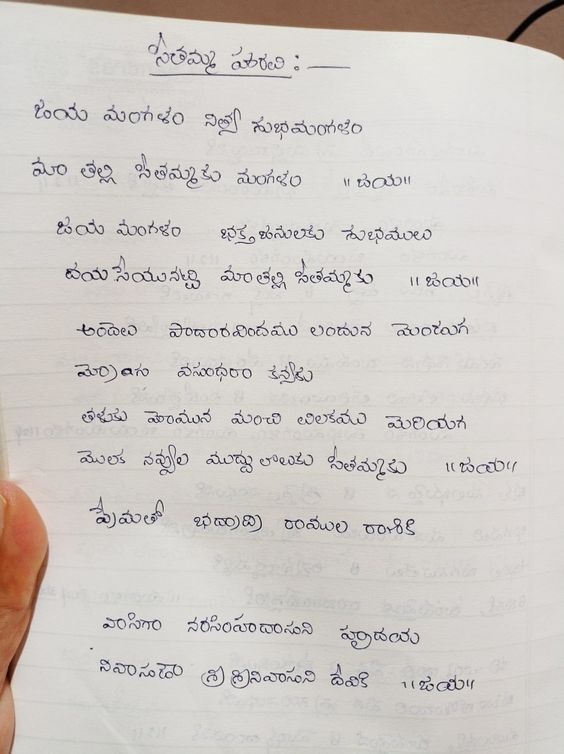 సీతమ్మ హారతి : —
జయ మంగళం నిత్య శుభమంగళం
మా తల్లి సీతమ్మకు మంగళం ॥జయ॥
జయ మంగళం భక్త జనులకు శుభములు
దయసేయునట్టి మాతల్లి సీతమ్మకు ॥జయ॥
అందెలు పాదారవిందము లందున మెండుగ
మ్రోగ వసుంధరా కన్యకు
తళుకు మోమున మంచి తిలకము మెరియగ
మొలక నవ్వుల ముద్దులొలుకు సీతమ్మకు ॥జయ॥
ప్రేమతో భద్రాద్రి రాముల రాణికి
వాసిగా నరసింహదాసుని హృదయ
నివాసుడా శ్రీ శ్రీనివాసుని దేవికి ॥జయ॥